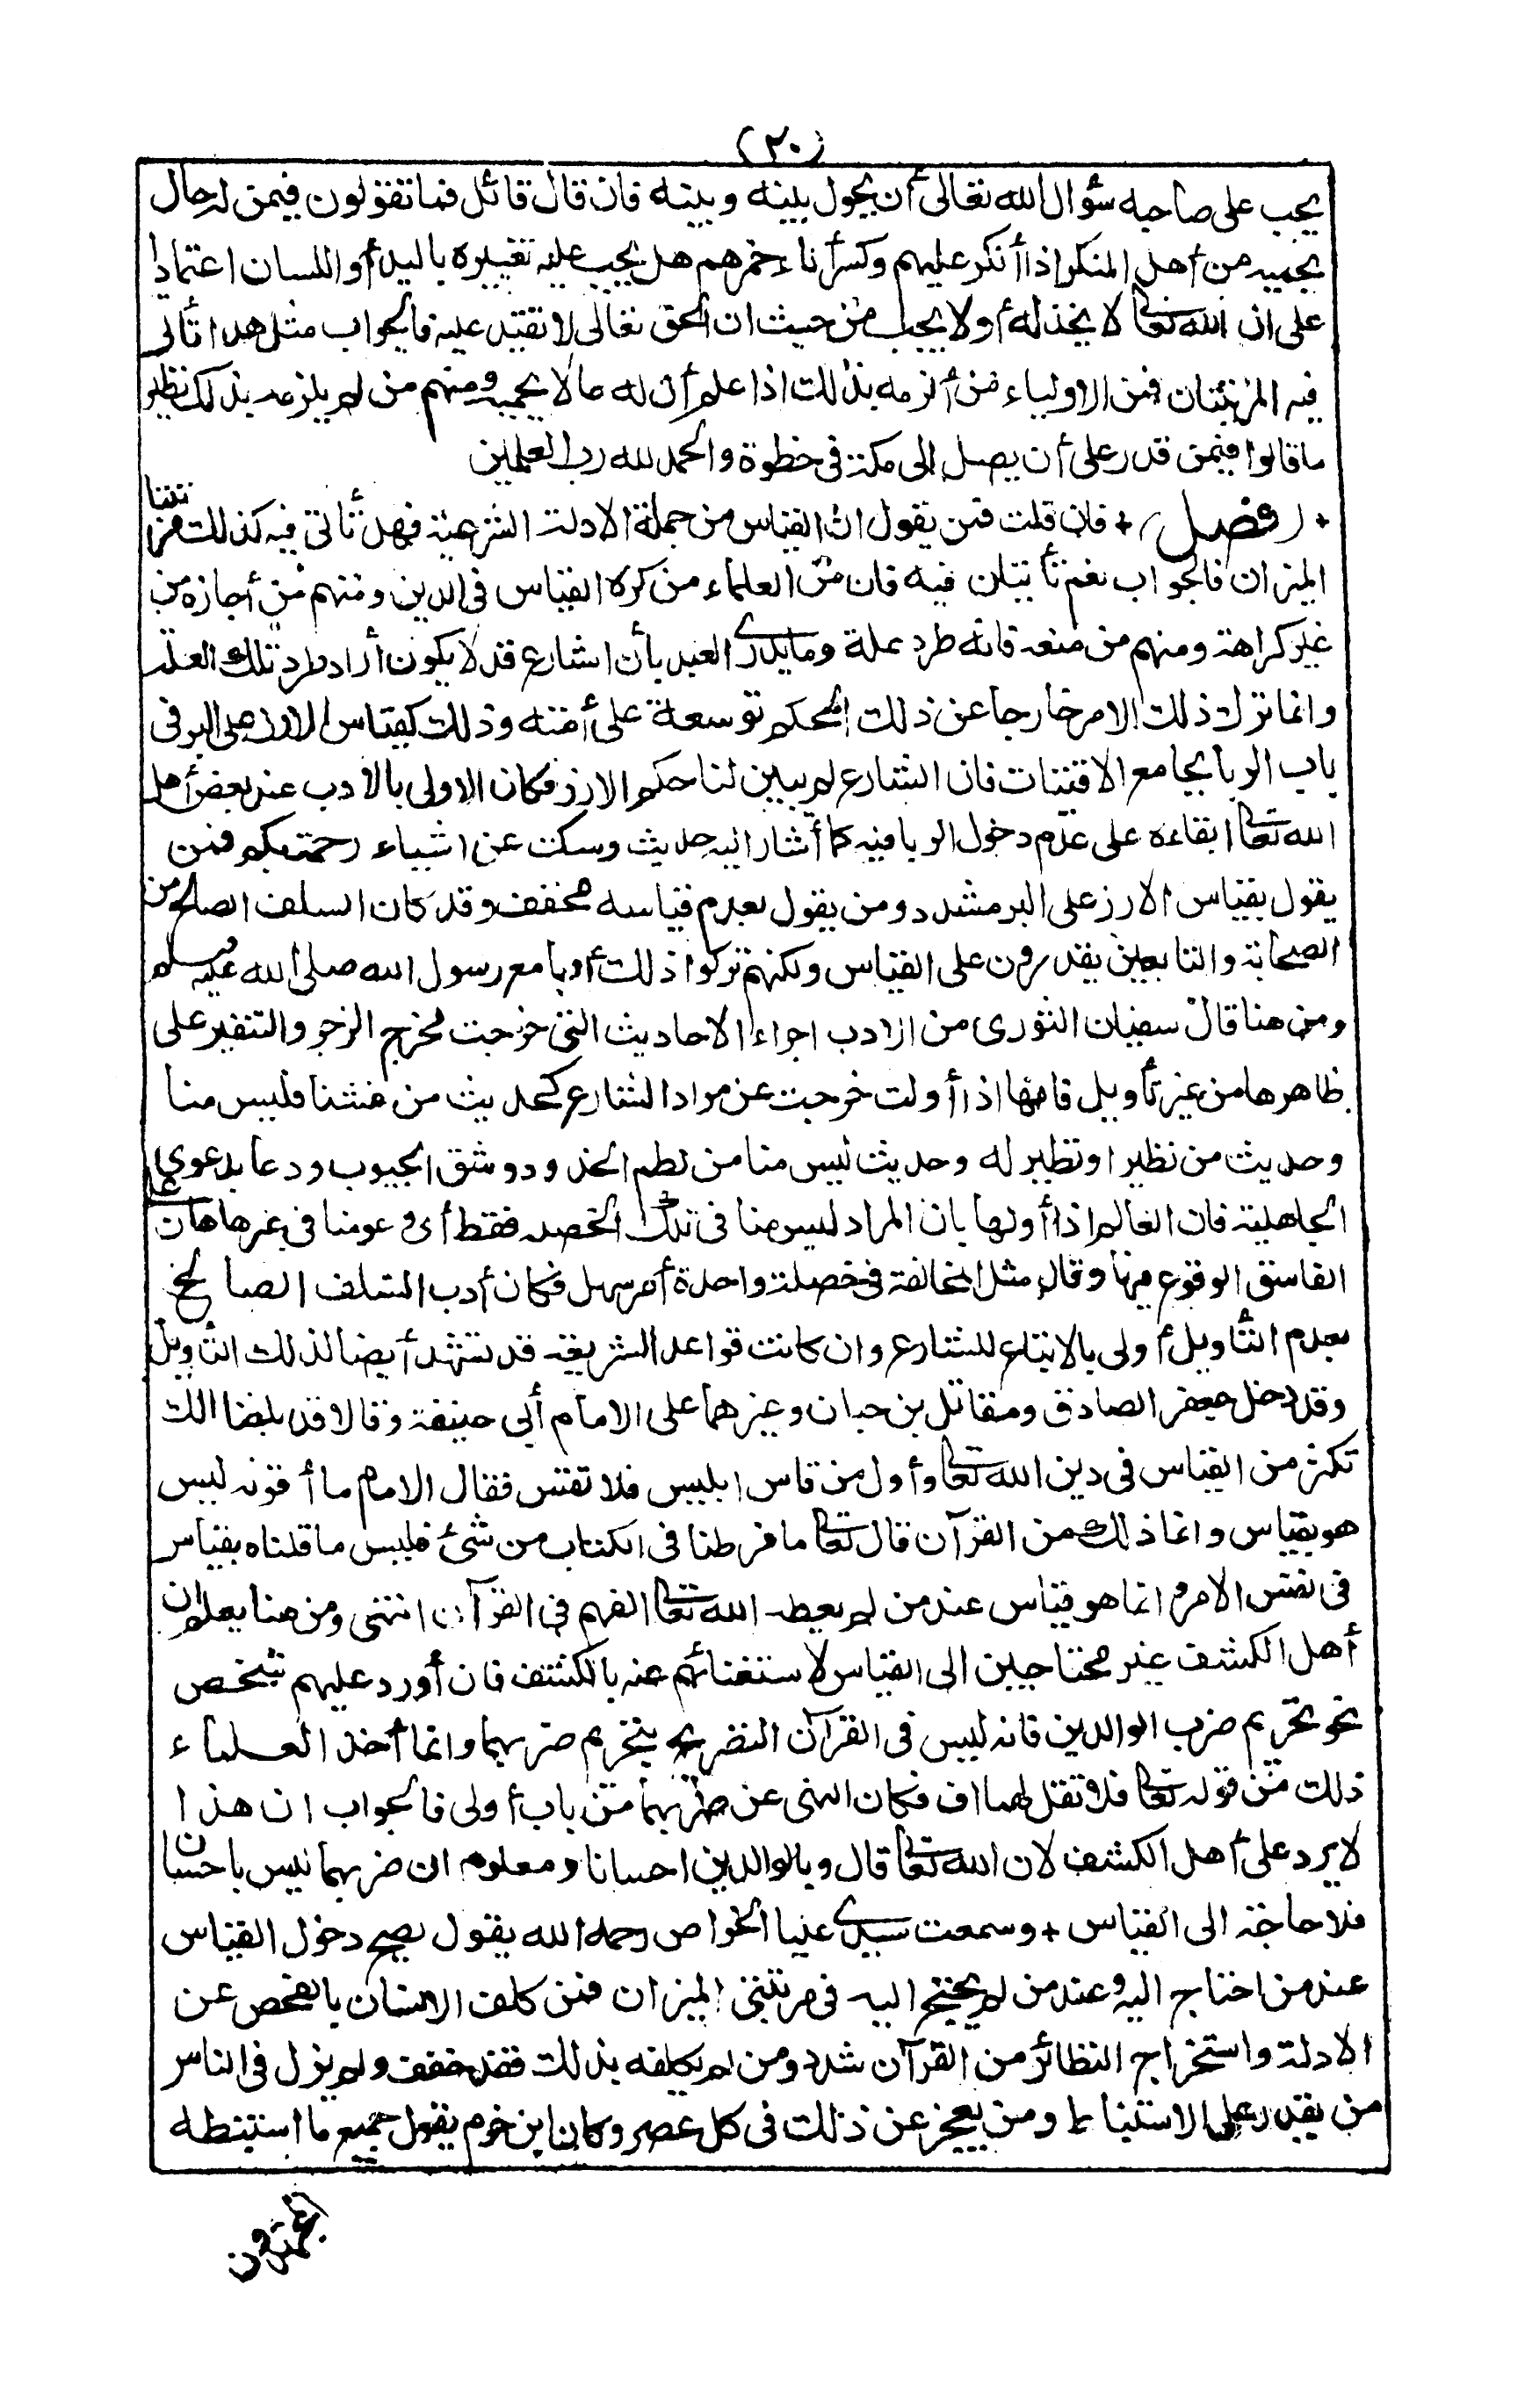 (٢٠)
يجب على صاحبه سؤال الله تعالى أن يحول بينه وبينه فان قال قائل فما تقولون فيمن له حال
يحميه من أهل المنكر اذا أنكر عليهم وكسر أناء خمرهم هل يجب عليه تغييره باليد أو اللسان اعتمادا
على ان الله تعالى لا يخذله أو لا يجب من حيث ان الحق تعالى لا تقييد عليه فالجواب مثل هذا تأتى
فيه المرتبتان فمن الاولياء من ألزمه بذلك اذا علم أن له حالا يحميه ومنهم من لم يلزمه بذلك نظير
ما قالوا فيمن قدر على أن يصل الى مكة فى خطوة والحمد لله رب العلمين
+ (فصل) + فان قلت فمن يقول ان القياس من جملة الادلة الشرعية فهل تأتى فيه كذلك مرتبتا
الميزان فالجواب نعم تأتيان فيه فان من العلماء من كره القياس فى الدين ومنهم من أجازه من
غير كراهة ومنهم من منعه فانه طرد علة وما يدرى العبد بأن الشارع قد لا يكون أراد طرد تلك العلة
وانما ترك ذلك الامر خارجا عن ذلك الحكم توسعة على أمته وذلك كقياس الارز على البر فى
باب الربا بجامع الاقتيات فان الشارع لم يبين لنا حكم الارز فكان الاولى بالادب عند بعض أهل
الله تعالى ابقاءه على عدم دخول الربا فيه كما أشار اليه حديث وسكت عن اشياء رحمة بكم فمن
يقول بقياس الارز على البر مشدد ومن يقول بعدم قياسه مخفف وقد كان السلف الصالح من
الصحابة والتابعين يقدرون على القياس ولكنهم تركوا ذلك أدبا مع رسول الله صلى الله عليه وسلم
ومن هنا قال سفيان الثورى من الادب اجراء الاحاديث التى خرجت مخرج الزجر والتنفير على
ظاهرها من غير تأويل فانها اذا أولت خرجت عن مراد الشارع كحديث من غشنا فليس منا
وحديث من تطير او تطير له وحديث ليس منا من لطم الخدود وشق الجيوب ودعا بدعوى
الجاهلية فان العالم اذا أولها بان المراد ليس منا فى تلك الخصلة فقط أى وهو منا فى غيرها هان على
الفاسق الوقوع فيها وقال مثل المخالفة فى خصلة واحدة أمر سهل فكان أدب السلف الصالح
بعدم التأويل أولى بالاتباع للشارع وان كانت قواعد الشريعة قد تشهد أيضا لذلك التأويل
وقد دخل جعفر الصادق ومقاتل بن حبان وغيرهما على الامام أبى حنيفة وقالا قد بلغنا انك
تكثر من القياس فى دين الله تعالى وأول من قاس ابليس فلا تقس فقال الامام ما أقوله ليس
هو بقياس وانما ذلك من القرآن قال تعالى ما فرطنا فى الكتاب من شئ فليس ما قلناه بقياس
فى نفس الامر انما هو قياس عند من لم يعطه الله تعالى الفهم فى القرآن انتهى ومن هنا يعلم ان
أهل الكشف غير محتاجين الى القياس لاستغنائهم عنه بالكشف فان أورد عليهم شخص
نحو تحريم ضرب الوالدين فانه ليس فى القرآن التصريح بتحريم ضربهما وانما أخذ العلماء
ذلك من قوله تعالى فلا تقل لهما اف فكان النهى عن ضربهما من باب أولى فالجواب ان هذا
لا يرد على أهل الكشف لان الله تعالى قال وبالوالدين احسانا ومعلوم ان ضربهما ليس باحسان
فلا حاجة الى القياس + وسمعت سيدى عليا الخواص رحمه الله يقول يصح دخول القياس
عند من احتاج اليه وعند من لم يحتج اليه فى مرتبتى الميزان فمن كلف الانسان بالفحص عن
الادلة واستخراج النظائر من القرآن شدد ومن لم يكلفه بذلك فقد خفف ولم يزل فى الناس
من يقدر على الاستنباط ومن يعجز عن ذلك فى كل عصر وكان ابن حزم يقول جميع ما استنبطه